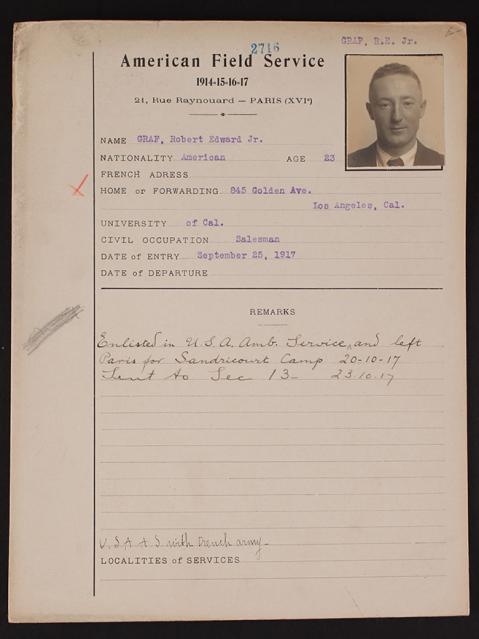 GRAF, R.E. Jr.
2716
American Field Service
1914-15-16-17
21, Rue Raynouard — PARIS (XVIe)
NAME GRAF, Robert Edward Jr.
NATIONALITY American AGE 23
FRENCH ADRESS
HOME or FORWARDING 845 Golden Ave.
Los Angeles, Cal.
UNIVERSITY of Cal.
CIVIL OCCUPATION Salesman
DATE of ENTRY September 25, 1917
DATE of DEPARTURE
REMARKS
Enlisted in U.S.A. Amb. Service, and left
Paris for Sandricourt Camp 20-10-17
Sent to Sec 13- 23.10.17
U.S.A.A.S with French army-
LOCALITIES of SERVICES